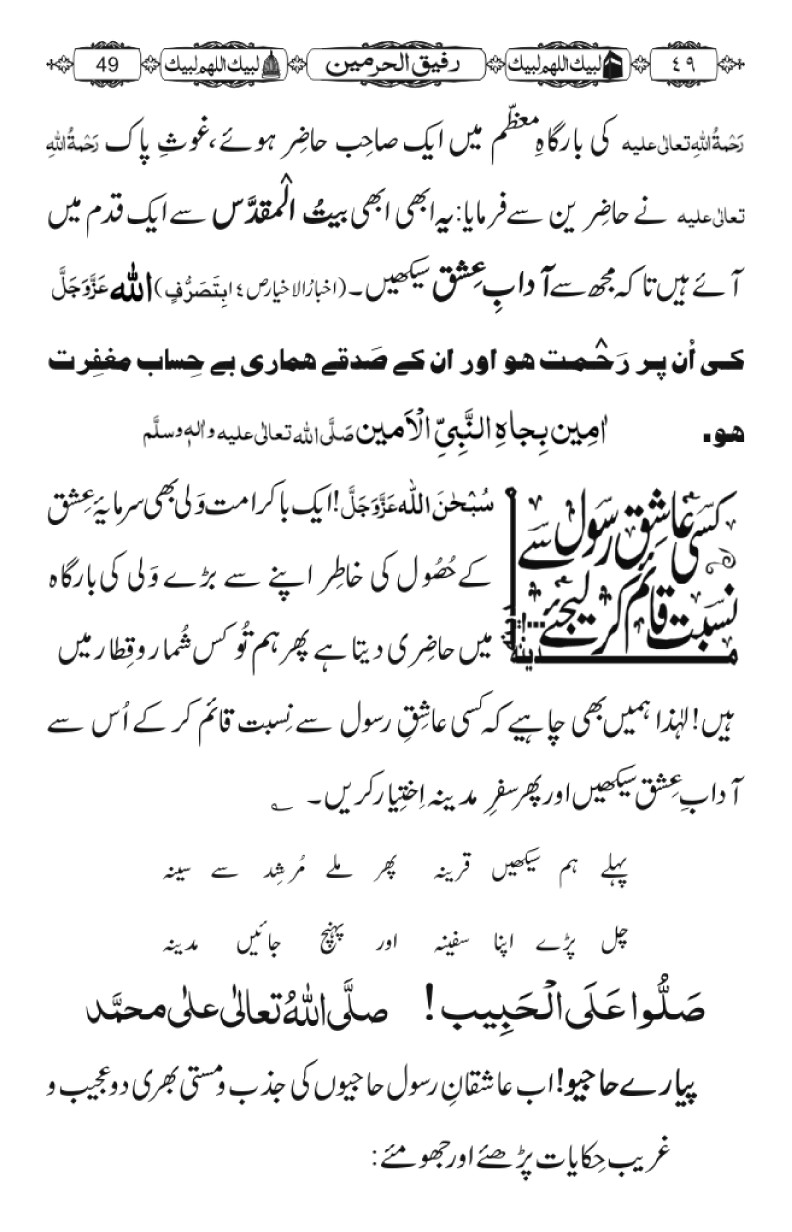 ٤٩ لبيك اللهم لبيك رفیق الحرمین لبيك اللهم لبيك 49
رَحْمَۃُ اللہِ تعالٰی علیہ کی بارگاہِ معظّم میں ایک صاحِب حاضِر ہوئے، غوثِ پاک رَحْمَۃُ اللہِ
تعالٰی علیہ نے حاضِرین سے فرمایا: یہ ابھی ابھی بیتُ الْمقدَّس سے ایک قدم میں
آئے ہیں تاکہ مجھ سے آدابِ عِشق سیکھیں۔ (اخبارُ الاخیار ص ١٤ بِتَصَرُّفٍ) اللّٰہ عَزَّوَجَلَّ
کی اُن پر رَحْمت ہو اور ان کے صَدقے ہماری بے حِساب مغفِرت
ہو۔ اٰمِین بِجاہِ النَّبِیِّ الْاَمین صَلَّی اللہ تعالٰی علیہ واٰلہٖ وسلَّم
کسی عاشِقِ رسول سے
نسبت قائم کر لیجئے....
مدینہ
مدینہ
سُبْحٰنَ اللّٰہ عَزَّوَجَلَّ! ایک باکرامت وَلی بھی سرمایۂ عِشق
کے حُصُول کی خاطِر اپنے سے بڑے وَلی کی بارگاہ
میں حاضِری دیتا ہے پھر ہم تُو کس شُمار و قِطار میں
ہیں! لہٰذا ہمیں بھی چاہیے کہ کسی عاشِقِ رسول سے نِسبت قائم کر کے اُس سے
آدابِ عِشق سیکھیں اور پھر سفرِ مدینہ اِختِیار کریں۔ ؎
پہلے ہم سیکھیں قرینہ پھر ملے مُرشِد سے سینہ
چل پڑے اپنا سفینہ اور پہنچ جائیں مدینہ
صَلُّوا عَلَی الْحَبِیب! صلَّی اللہُ تعالٰی علٰی محمَّد
پیارے حاجیو! اب عاشقانِ رسول حاجیوں کی جذب و مستی بھری دو عجیب و
غریب حِکایات پڑھئے اور جھومئے: